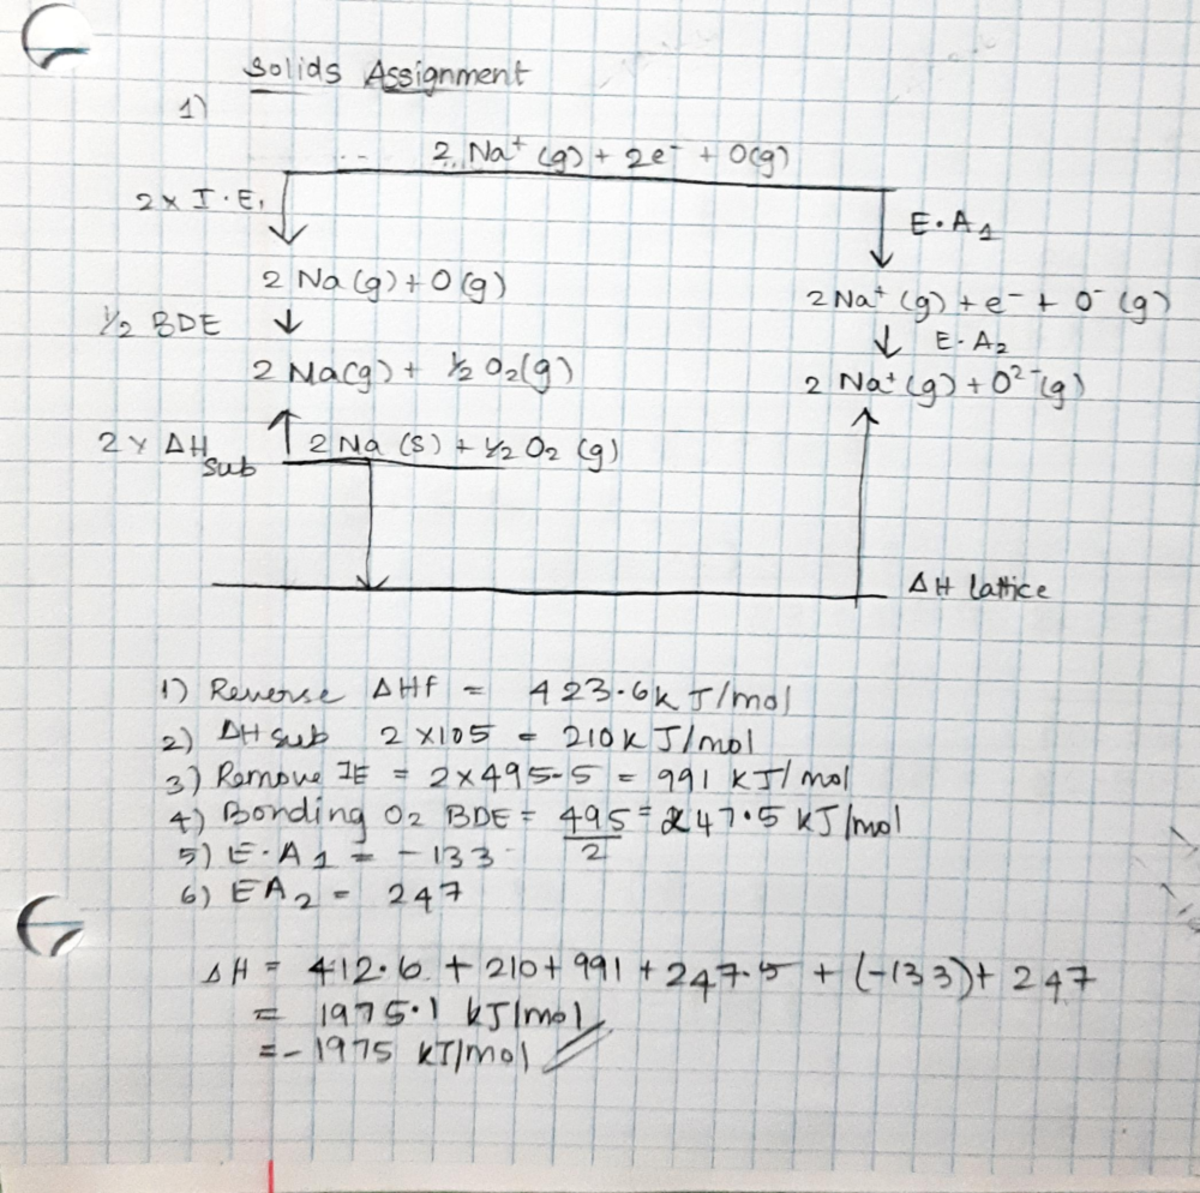 Solids Assignment
1)
2 Na⁺ (g) + 2e⁻ + O(g)
2 x I.E₁
E.A₁
2 Na (g) + O (g)
2 Na⁺ (g) + e⁻ + O⁻ (g)
½ BDE
E.A₂
2 Na(g) + ½ O₂(g)
2 Na⁺ (g) + O²⁻ (g)
2 x ΔH sub
2 Na (s) + ½ O₂ (g)
ΔH lattice
1) Reverse ΔHf = 423.6 kJ/mol
2) ΔH sub 2 x 105 = 210 kJ/mol
3) Remove IE = 2 x 495.5 = 991 kJ/mol
4) Bonding O₂ BDE = 495/2 = 247.5 kJ/mol
5) E.A₁ = -133
6) EA₂ = 247
ΔH = 412.6 + 210 + 991 + 247.5 + (-133) + 247
= 1975.1 kJ/mol
= -1975 kJ/mol